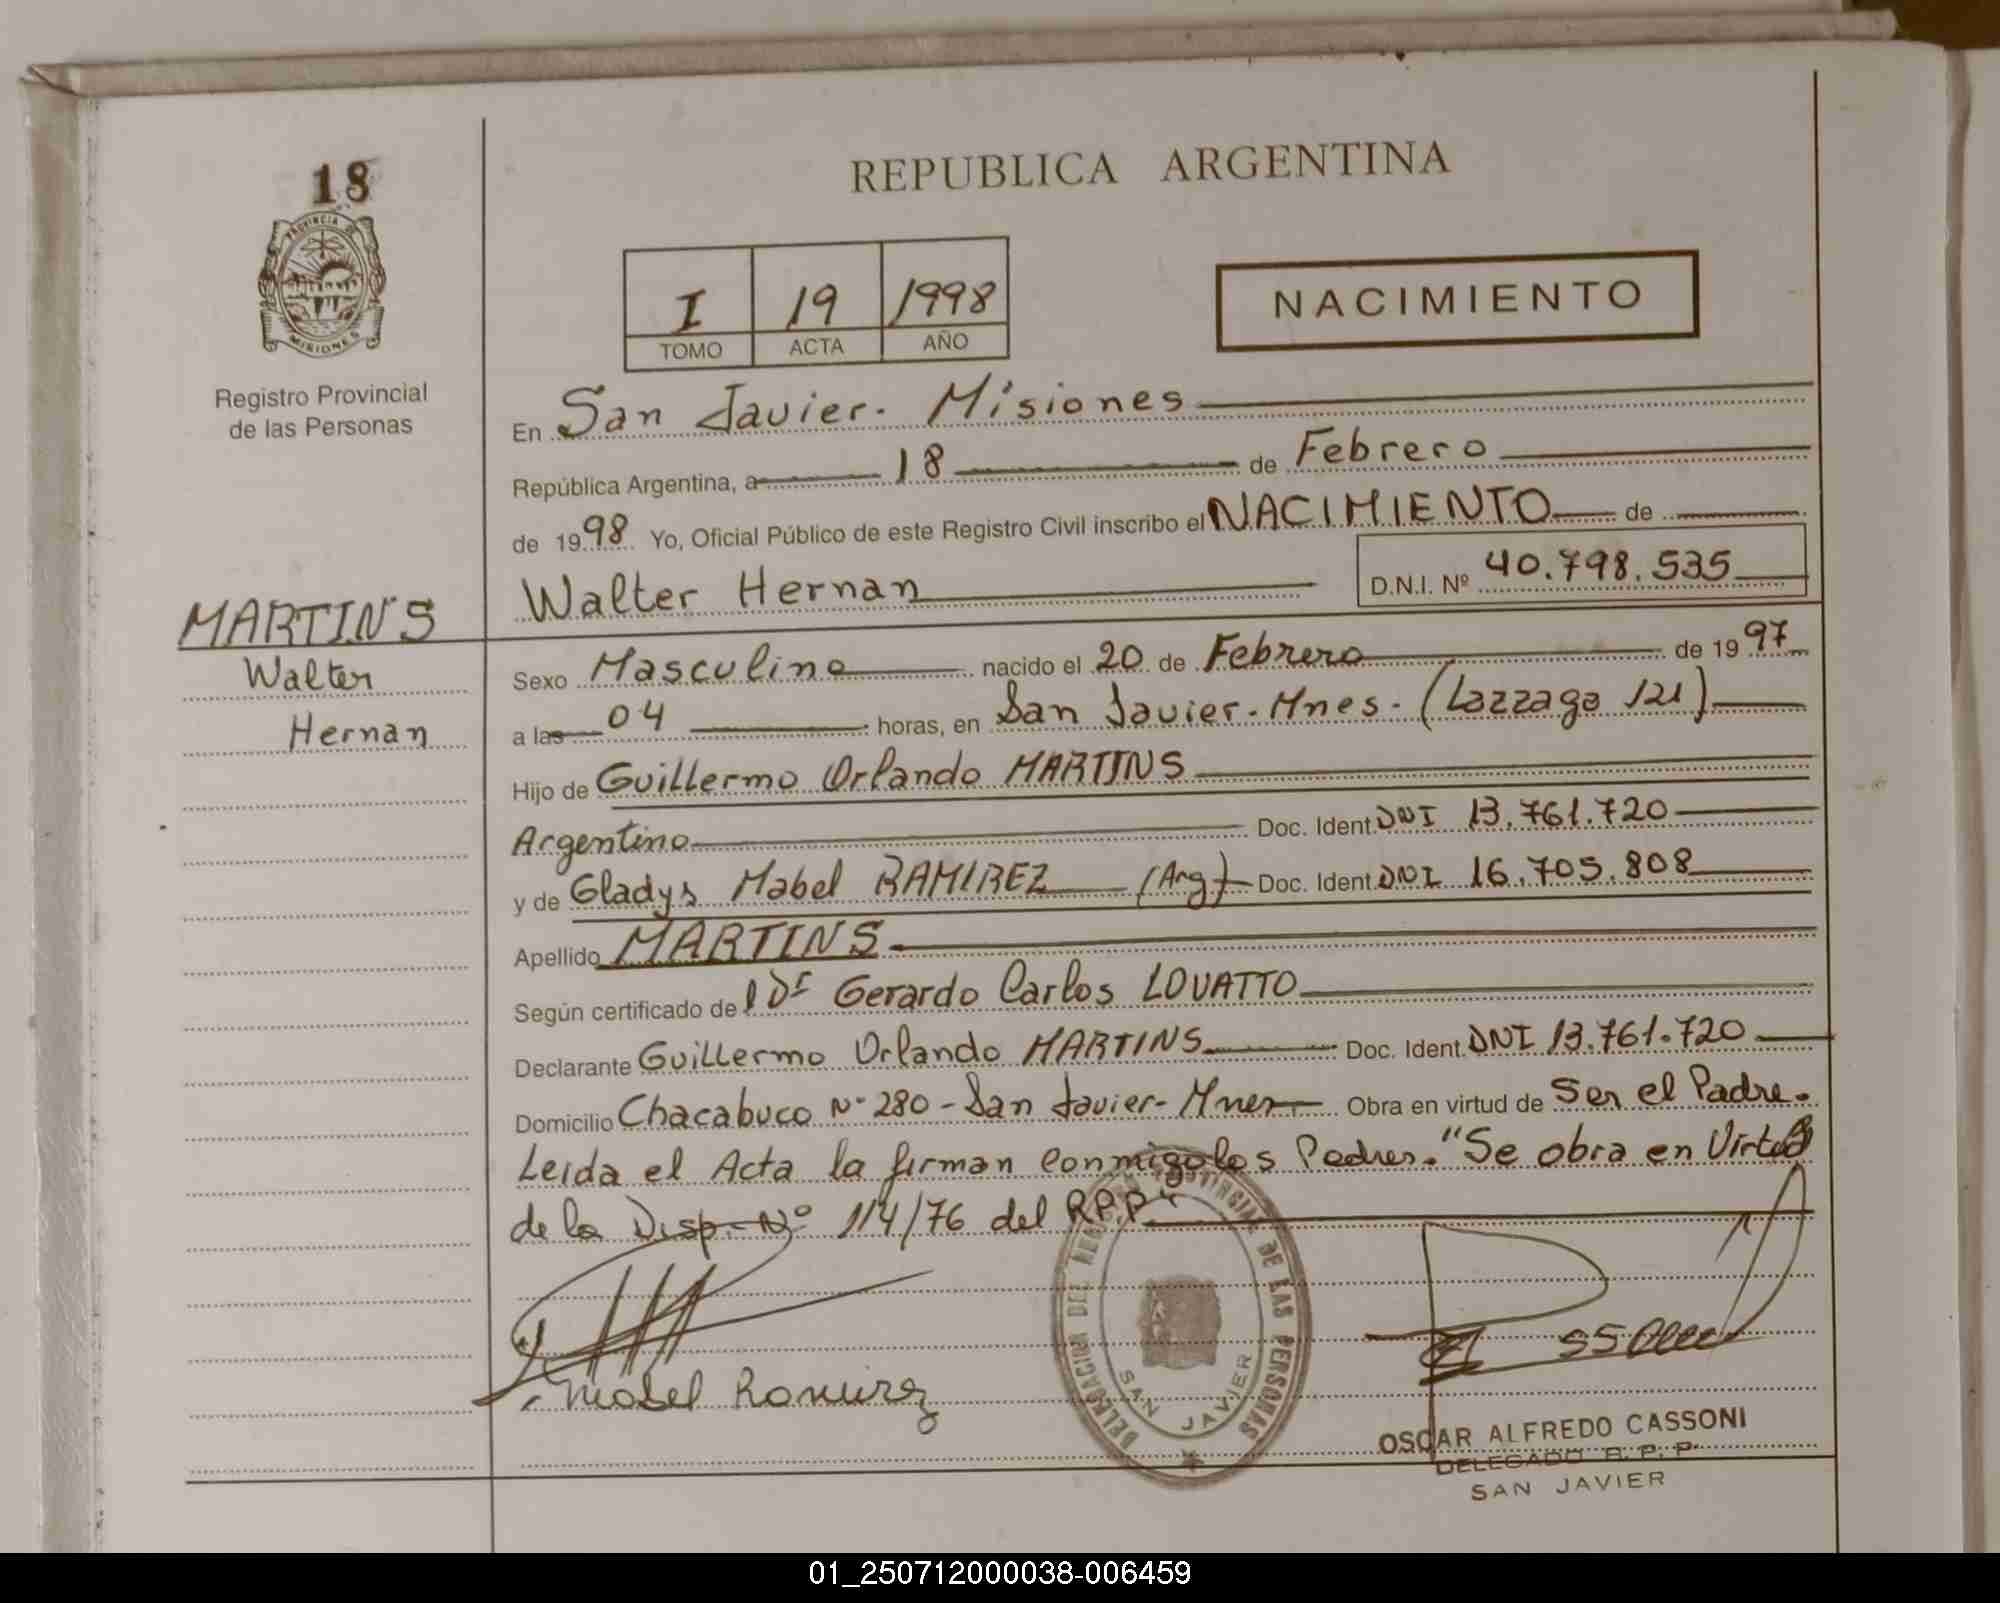 18
PROVINCIA DE
MISIONES
Registro Provincial
de las Personas
REPUBLICA ARGENTINA
I 19 1998
TOMO ACTA AÑO
NACIMIENTO
En San Javier. Misiones
República Argentina, a 18 de Febrero
de 1998 Yo, Oficial Público de este Registro Civil inscribo el NACIMIENTO de
Walter Hernan D.N.I. Nº 40.798.535
MARTINS
Walter
Hernan
Sexo Masculino nacido el 20 de Febrero de 1997
a las 04 horas, en San Javier-Mnes- (Lazzaga 121)
Hijo de Guillermo Orlando MARTINS
Argentino Doc. Ident. DNI 13.761.720
y de Gladys Mabel RAMIREZ (Arg) Doc. Ident. DNI 16.705.808
Apellido MARTINS
Según certificado de l Dr Gerardo Carlos LOVATTO
Declarante Guillermo Orlando MARTINS Doc. Ident. DNI 13.761.720
Domicilio Chacabuco Nº 280-San Javier-Mnes Obra en virtud de Ser el Padre.
Leida el Acta la firman conmigo los Padres. "Se obra en Virtud
de la Disp. Nº 114/76 del R.P.P"
Mabel Ramirez
DELEGACION DEL REGISTRO PROVINCIAL DE LAS PERSONAS
SAN JAVIER
OSCAR ALFREDO CASSONI
DELEGADO R. P. P
SAN JAVIER
01_250712000038-006459